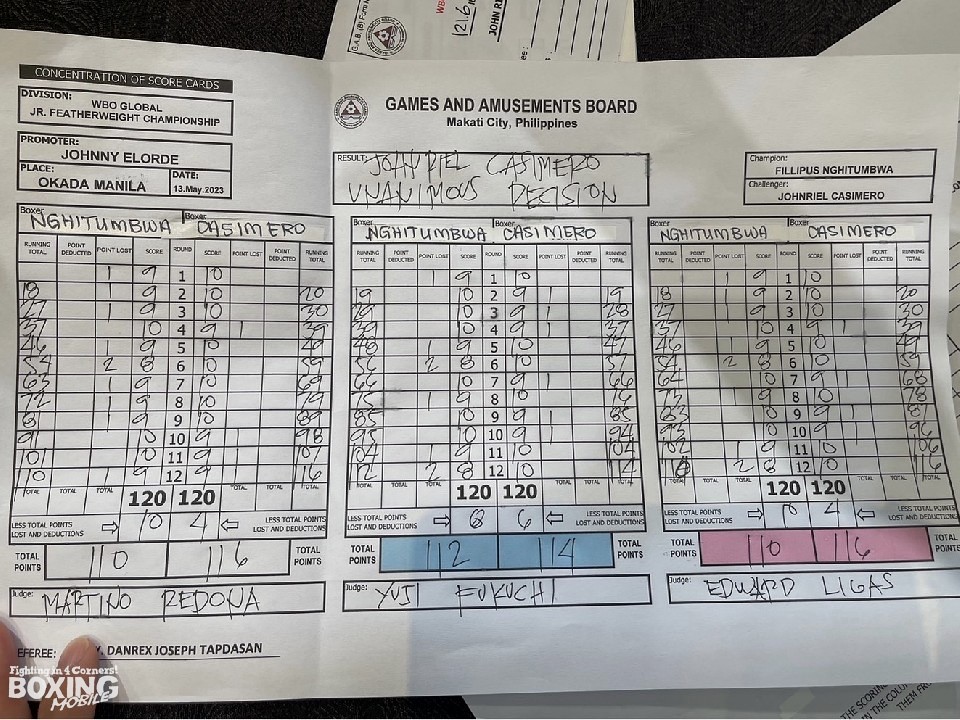 G.A.B. (B) Form
WB
121.6
JOHN RI
CONCENTRATION OF SCORE CARDS
DIVISION:
WBO GLOBAL
JR. FEATHERWEIGHT CHAMPIONSHIP
PROMOTER:
JOHNNY ELORDE
PLACE:
OKADA MANILA
DATE:
13.May.2023
GAMES AND AMUSEMENTS BOARD
Makati City, Philippines
RESULT: JOHNRIEL CASIMERO
UNANIMOUS DECISION
Champion:
FILLIPUS NGHITUMBWA
Challenger:
JOHNRIEL CASIMERO
Boxer NGHITUMBWA Boxer CASIMERO
RUNNING TOTAL POINT DEDUCTED POINT LOST SCORE ROUND SCORE POINT LOST POINT DEDUCTED RUNNING TOTAL
1 9 1 10
18 1 9 2 10 20
27 1 9 3 10 30
37 10 4 9 1 39
46 1 9 5 10 49
54 2 8 6 10 59
63 1 9 7 10 69
72 1 9 8 10 79
81 1 9 9 10 89
91 10 10 9 1 98
101 10 11 9 1 107
110 1 9 12 9 1 116
TOTAL TOTAL TOTAL 120 120 TOTAL TOTAL TOTAL
LESS TOTAL POINTS LOST AND DEDUCTIONS 10 4 LESS TOTAL POINTS LOST AND DEDUCTIONS
TOTAL POINTS 110 116 TOTAL POINTS
Judge: MARTINO REDONA
Boxer NGHITUMBWA Boxer CASIMERO
RUNNING TOTAL POINT DEDUCTED POINT LOST SCORE ROUND SCORE POINT LOST POINT DEDUCTED RUNNING TOTAL
9 1 10
19 10 2 9 1 19
29 10 3 9 1 28
39 10 4 9 1 37
48 1 9 5 10 47
56 2 8 6 10 57
66 10 7 9 1 66
75 1 9 8 10 76
85 10 9 9 1 85
95 10 10 9 1 94
104 1 9 11 10 104
112 2 8 12 10 114
TOTAL TOTAL TOTAL 120 120 TOTAL TOTAL TOTAL
LESS TOTAL POINTS LOST AND DEDUCTIONS 8 6 LESS TOTAL POINTS LOST AND DEDUCTIONS
TOTAL POINTS 112 114 TOTAL POINTS
Judge: YUJI FUKUCHI
Boxer NGHITUMBWA Boxer CASIMERO
RUNNING TOTAL POINT DEDUCTED POINT LOST SCORE ROUND SCORE POINT LOST POINT DEDUCTED RUNNING TOTAL
1 9 1 10
18 1 9 2 10 20
27 1 9 3 10 30
37 10 4 9 1 39
46 1 9 5 10 49
54 2 8 6 10 59
64 10 7 9 1 68
73 1 9 8 10 78
83 10 9 9 1 87
93 10 10 9 1 96
102 1 9 11 10 106
110 2 8 12 10 116
TOTAL TOTAL TOTAL 120 120 TOTAL TOTAL TOTAL
LESS TOTAL POINTS LOST AND DEDUCTIONS 10 4 LESS TOTAL POINTS LOST AND DEDUCTIONS
TOTAL POINTS 110 116 TOTAL POINTS
Judge: EDWARD LIGAS
EFEREE: DANREX JOSEPH TAPDASAN
THE SCORIN
IN THE COLU
THEM FR
Fighting in 4 Corners!
BOXING
MOBILE